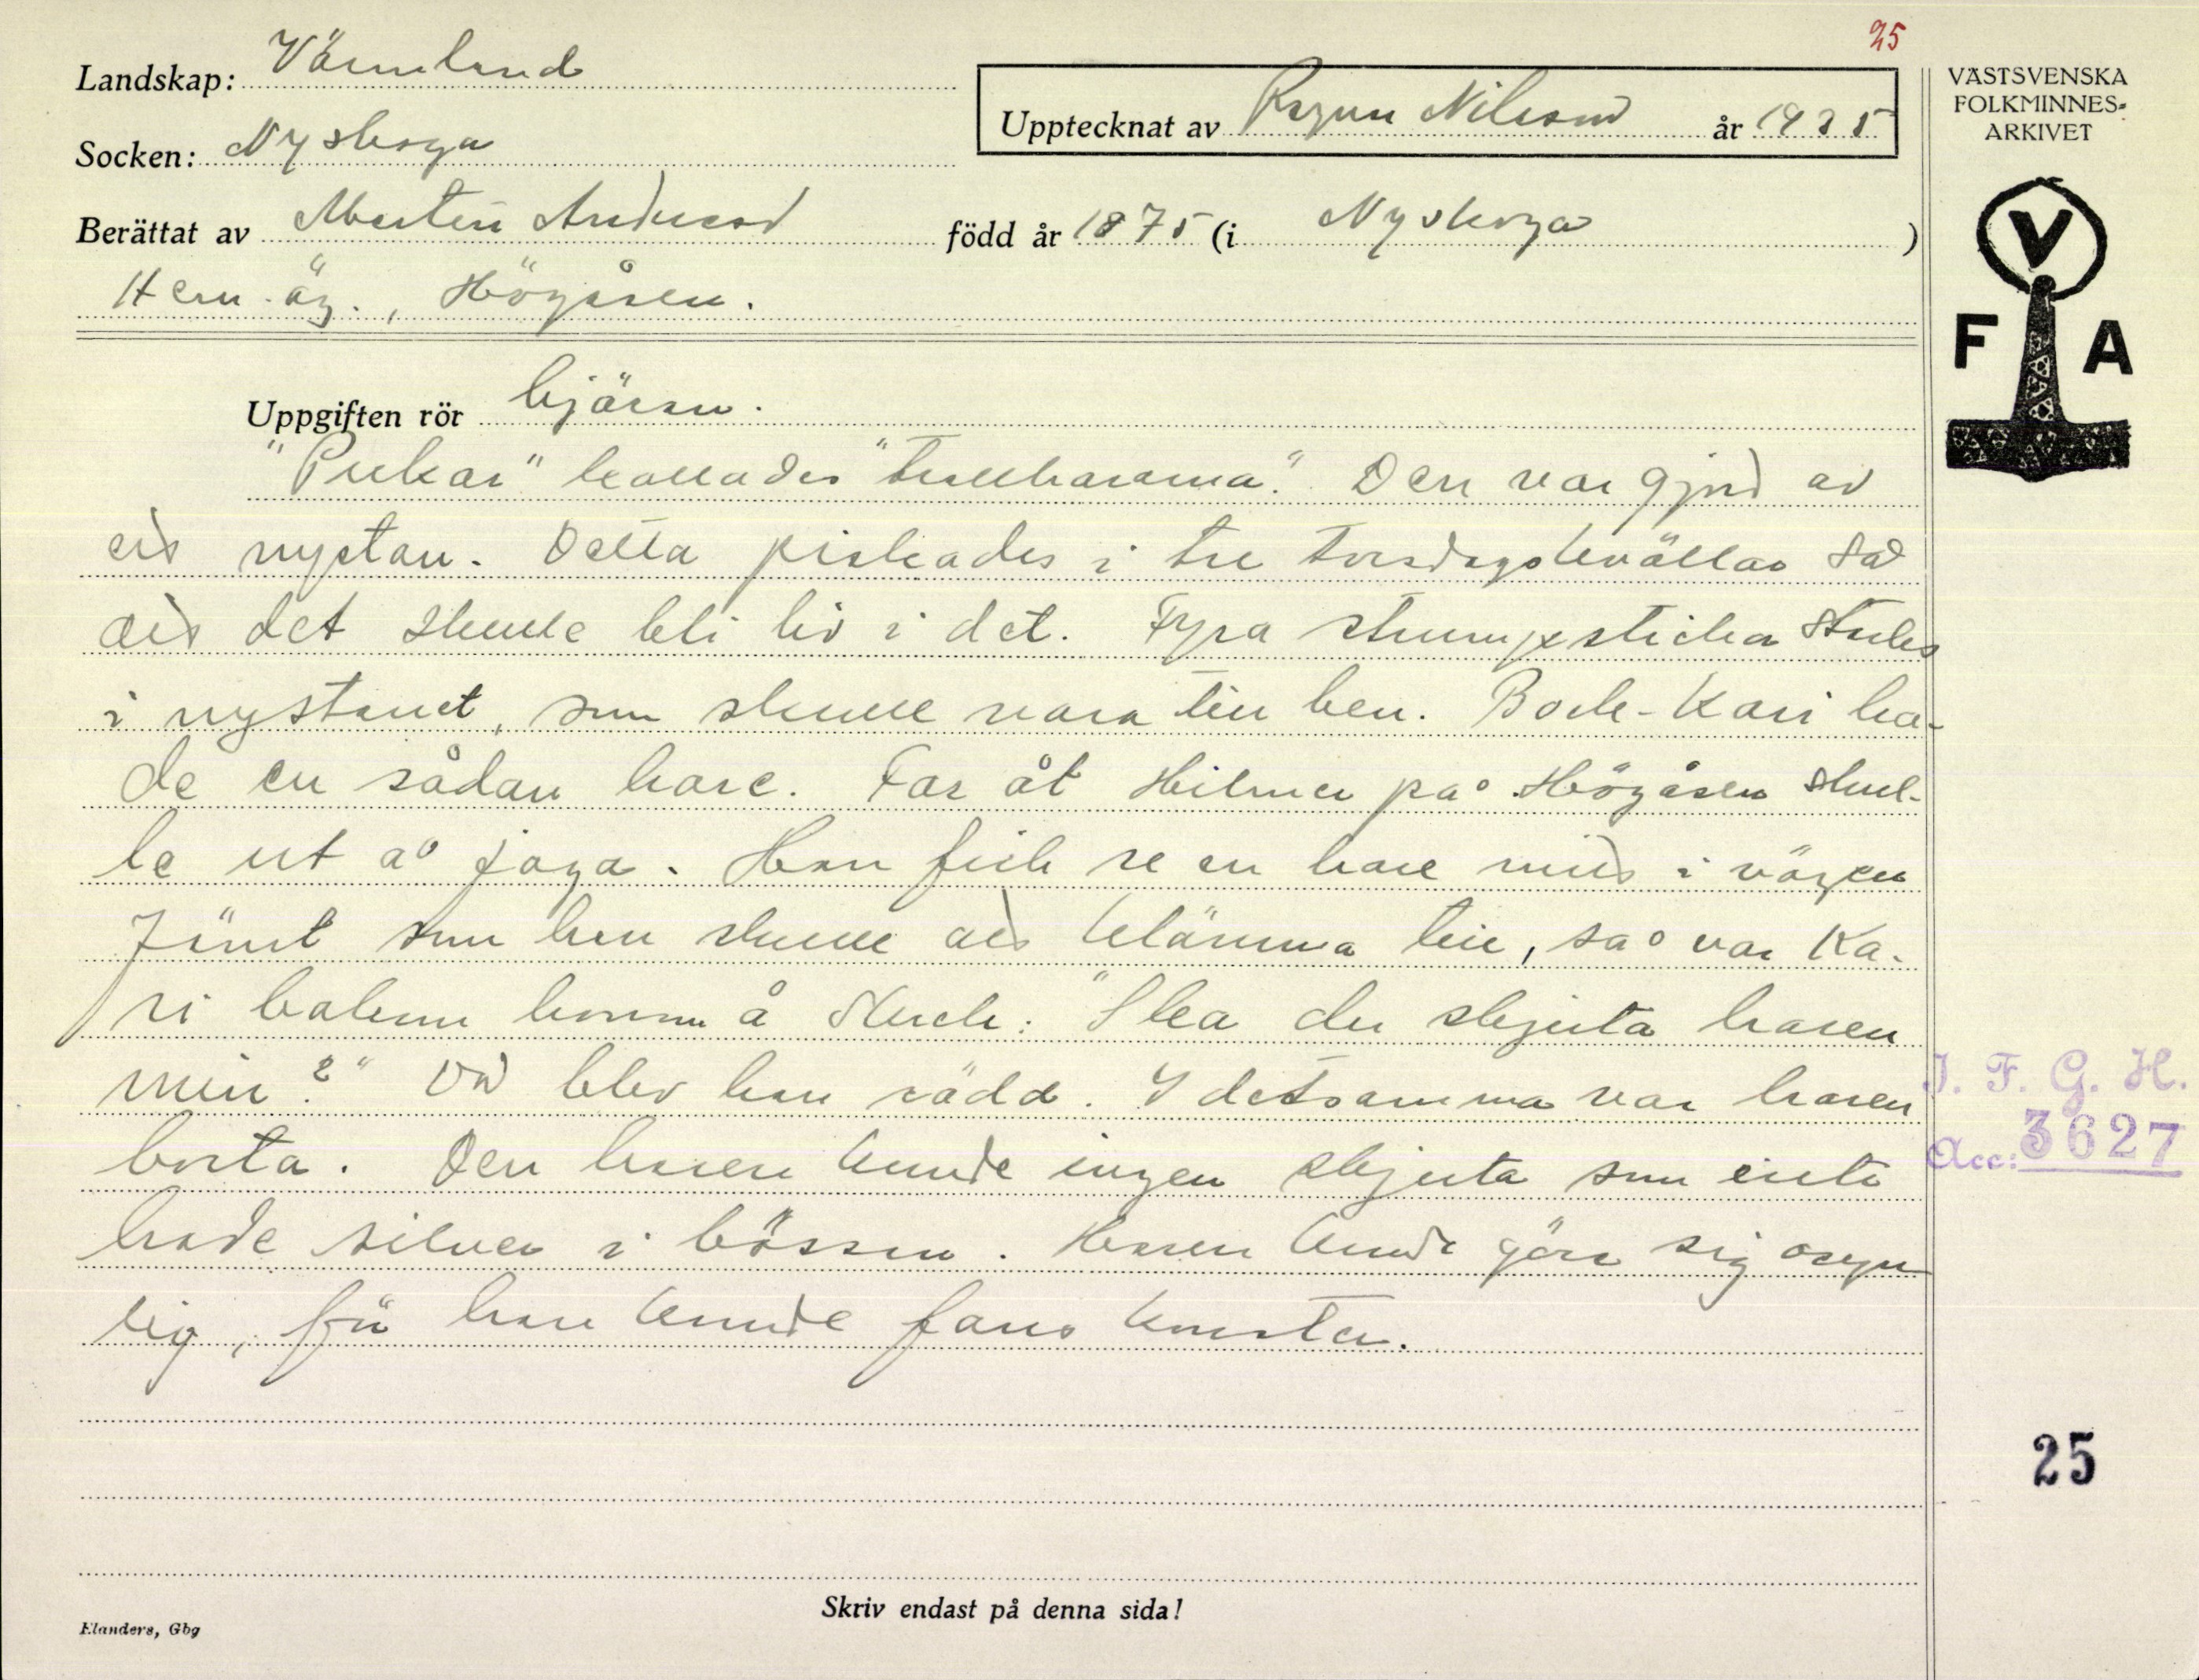 25
Landskap: Värmland
Upptecknat av Ragnar Nilsson år 1935
VÄSTSVENSKA
FOLKMINNES-
ARKIVET
Socken: Nyskoga
Berättat av Martin Andersson född år 1875 (i Nyskoga )
Hem.äg., Högåsen.
V
F A
Uppgiften rör bjäran.
"Pukar" kallades "trollhararna". Den var gjord av
ett nystan. Detta piskades i tre torsdagskvällar så
att det skulle bli liv i det. Fyra strumpstickor stacks
i nystanet, som skulle vara till ben. Bock-Kari ha-
de en sådan hare. Far åt Hilmer på Högåsen skul-
le ut å jaga. Han fick se en hare mitt i vägen
Jämt som han skulle att klämma till, så var Ka-
ri bakom honom å skrek: "Ska du skjuta haren
min?" Då blev han rädd. I detsamma var haren
borta. Den haren kunde ingen skjuta som inte
hade silver i bössan. Haren kunde göra sig osyn
lig, för han kunde fans konster.
I. F. G. H.
Acc: 3627
25
Skriv endast på denna sida!
Elanders, Gbg